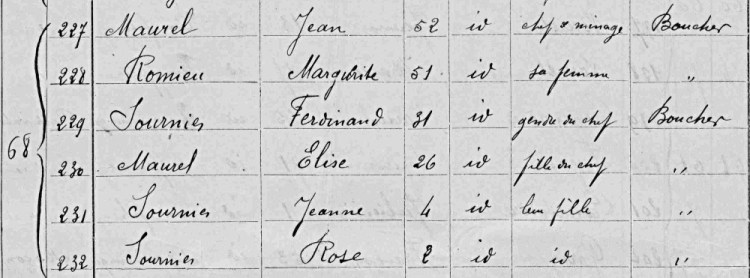 227 Maurel Jean 52 id chef de ménage Boucher
228 Romieu Marguerite 51 id sa femme "
229 Sournies Ferdinand 31 id gendre du chef Boucher
68 230 Maurel Elise 26 id fille du chef "
231 Sournies Jeanne 4 id leur fille "
232 Sournies Rose 2 id id "